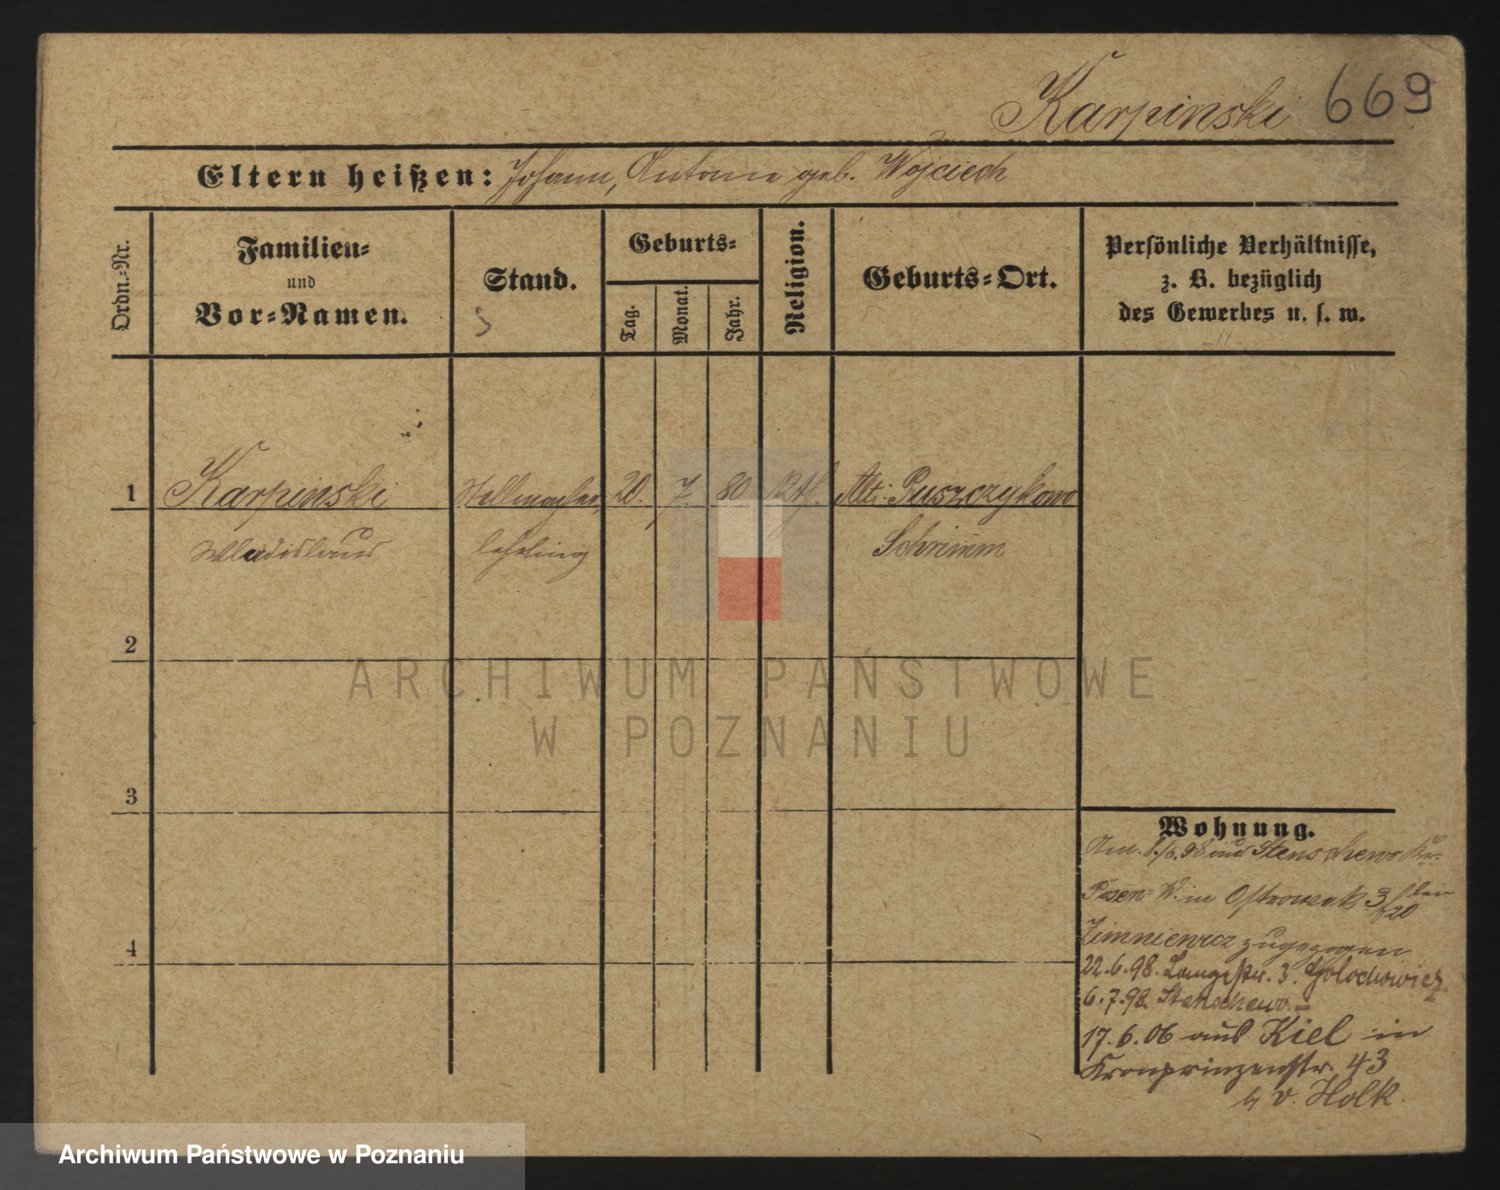 Karpinski 669
Eltern heißen: Johann, Antonie geb. Wojciech
Ordn.-Nr.
Familien-
und
Vor-Namen.
Stand.
Geburts-
Tag.
Monat.
Jahr.
Religion.
Geburts-Ort.
Persönliche Verhältnisse,
z. B. bezüglich
des Gewerbes u. s. w.
1 Karpinski Stellmacher 20. 7. 80 Kth. Alt. Puszczykowo
Wladislaus lehrling Schrimm
2
3
4
Wohnung.
98 aus Stenschewo Kr.
Posen W. in Ostrowek 3 bei
20
Zimniewicz zugezogen
22.6.98. Langestr. 3. Golochowicz
6.7.98. Stenschewo.
17.6.06 aus Kiel in
Kronprinzenstr. 43
b v. Holk.
ARCHIWUM PAŃSTWOWE
W POZNANIU
Archiwum Państwowe w Poznaniu